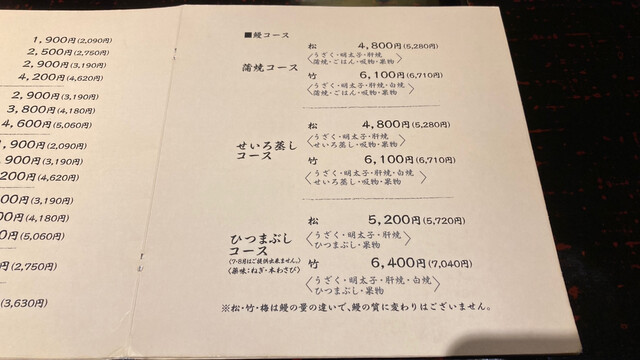 1,900円(2,090円)
2,500円(2,750円)
2,900円(3,190円)
4,200円(4,620円)
2,900円(3,190円)
3,800円(4,180円)
4,600円(5,060円)
,900円(2,090円)
900円(3,190円)
200円(4,620円)
00円(3,190円)
00円(4,180円)
0円(5,060円)
円(2,750円)
(3,630円)
■鰻コース
蒲焼コース
松 4,800円(5,280円)
〈うざく・明太子・肝焼
蒲焼・ごはん・吸物・果物〉
竹 6,100円(6,710円)
〈うざく・明太子・肝焼・白焼
蒲焼・ごはん・吸物・果物〉
せいろ蒸し
コース
松 4,800円(5,280円)
〈うざく・明太子・肝焼
せいろ蒸し・吸物・果物〉
竹 6,100円(6,710円)
〈うざく・明太子・肝焼・白焼
せいろ蒸し・吸物・果物〉
ひつまぶし
コース
(7・8月はご提供出来ません。)
〈薬味;ねぎ・本わさび〉
松 5,200円(5,720円)
〈うざく・明太子・肝焼
ひつまぶし・果物〉
竹 6,400円(7,040円)
〈うざく・明太子・肝焼・白焼
ひつまぶし・果物〉
※松・竹・梅は鰻の量の違いで、鰻の質に変わりはございません。